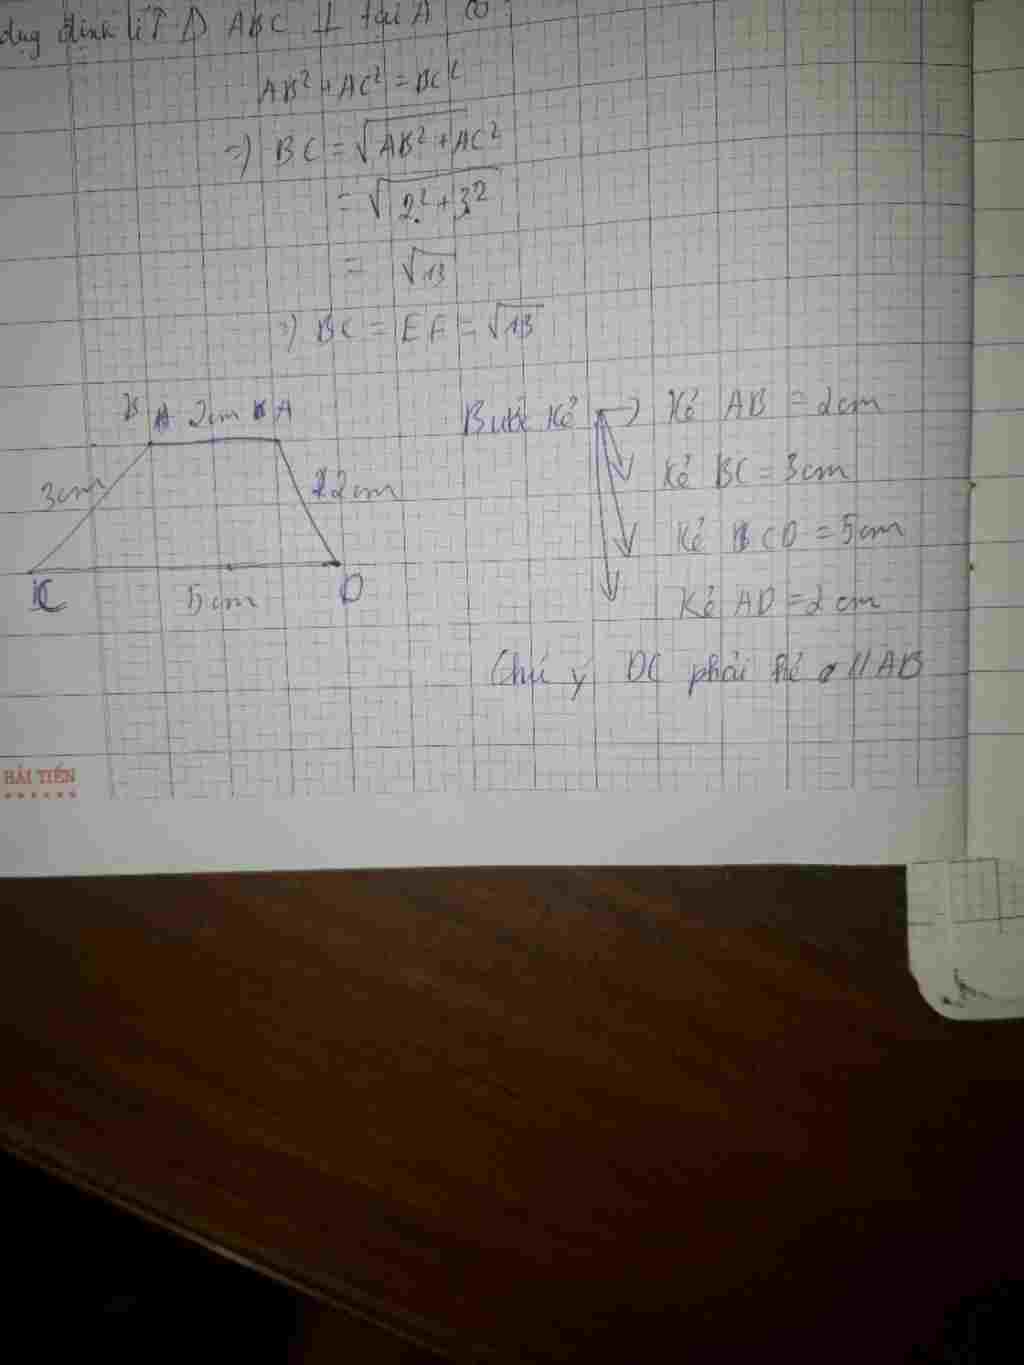 dụng định lí Δ ABC ⊥ tại A có
AB² + AC² = BC²
=) BC = √AB² + AC²
= √2² + 3²
= √13
=) BC = EF = √13
B 2cm A
3cm
2cm
C 5cm D
Bước kẻ → Kẻ AB = 2cm
Kẻ BC = 3cm
Kẻ CD = 5cm
Kẻ AD = 2cm
Chú ý DC phải kẻ // AB
HẢI TIẾN